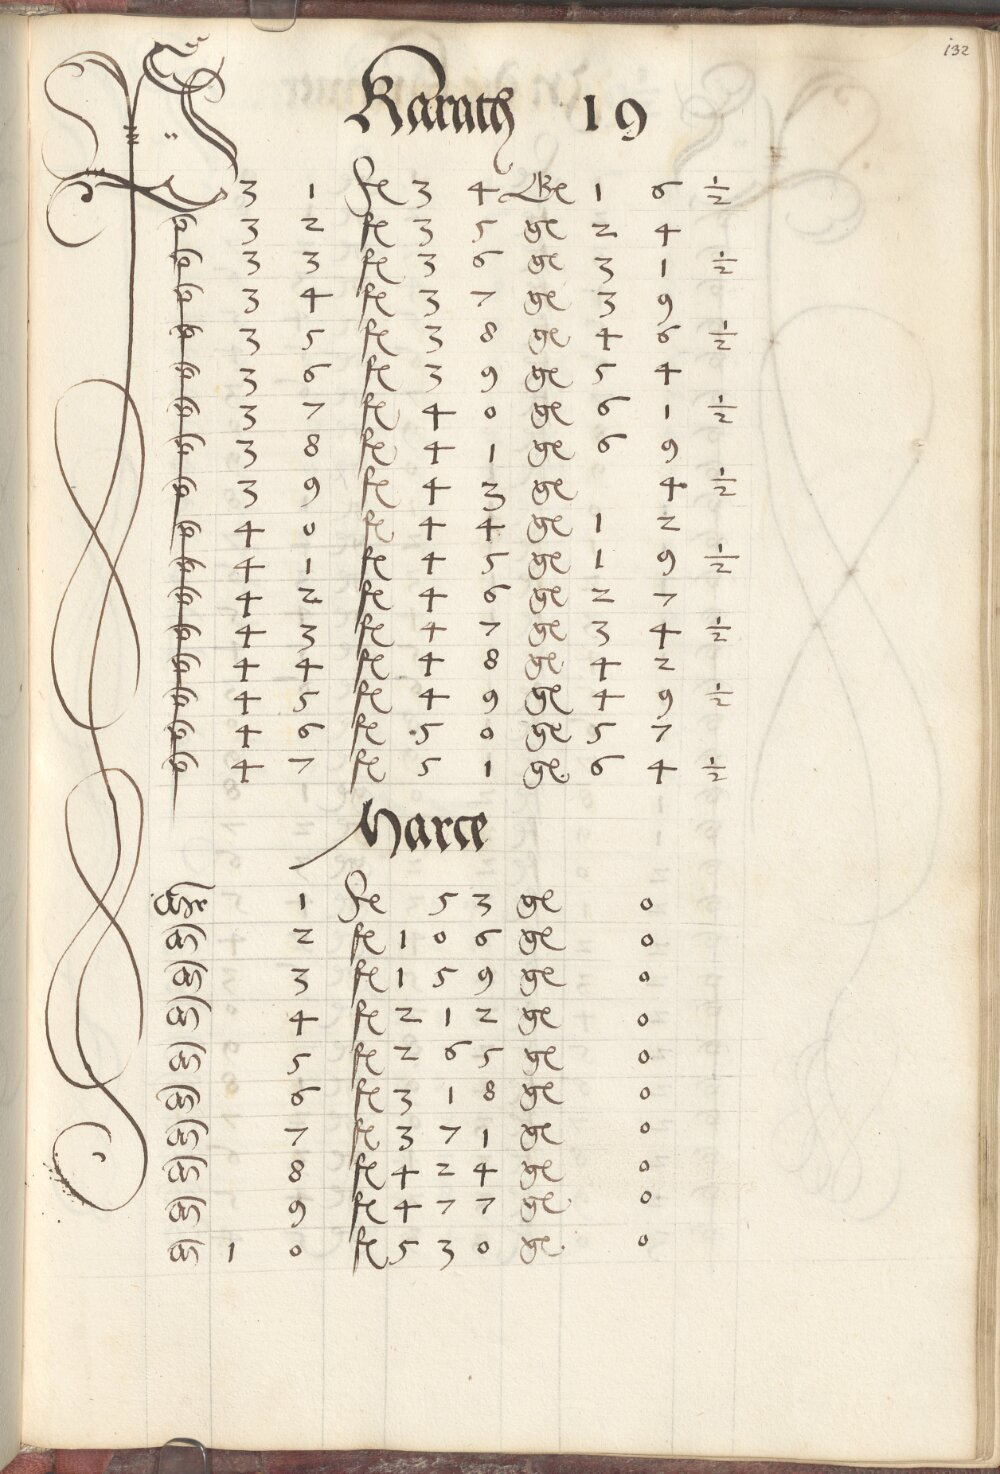 132
Karath 19
3 1 fl 3 4 Ge 1 6 1/2
3 2 fl 3 5 ge 2 4
3 3 fl 3 6 ge 3 1 1/2
3 4 fl 3 7 ge 3 9
3 5 fl 3 8 ge 4 6 1/2
3 6 fl 3 9 ge 5 4
3 7 fl 4 0 ge 6 1 1/2
3 8 fl 4 1 ge 6 9
3 9 fl 4 3 ge 4 1/2
4 0 fl 4 4 ge 1 2
4 1 fl 4 5 ge 1 9 1/2
4 2 fl 4 6 ge 2 7
4 3 fl 4 7 ge 3 4 1/2
4 4 fl 4 8 ge 4 2
4 5 fl 4 9 ge 4 9 1/2
4 6 fl 5 0 ge 5 7
4 7 fl 5 1 ge 6 4 1/2
Marce
1 fl 5 3 ge 0
2 fl 1 0 6 ge 0
3 fl 1 5 9 ge 0
4 fl 2 1 2 ge 0
5 fl 2 6 5 ge 0
6 fl 3 1 8 ge 0
7 fl 3 7 1 ge 0
8 fl 4 2 4 ge 0
9 fl 4 7 7 ge 0
1 0 fl 5 3 0 ge 0